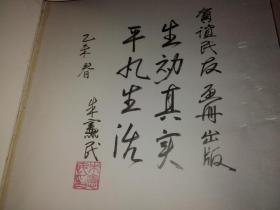 贺谊民反画册出版
生动真实
平凡生活
乙未春
朱宪民